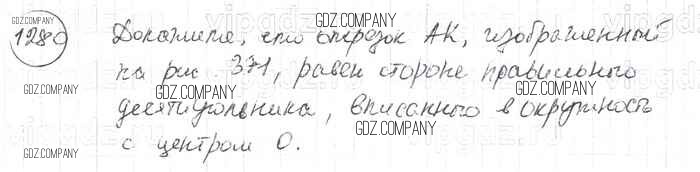 GDZ.COMPANY
GDZ.COMPANY
1280 Докажите, что отрезок АК, изображенный
на рис. 371, равен стороне правильного
GDZ.COMPANY
десятиугольника, вписанного в окружность
GDZ.COMPANY
с центром О.
GDZ.COMPANY